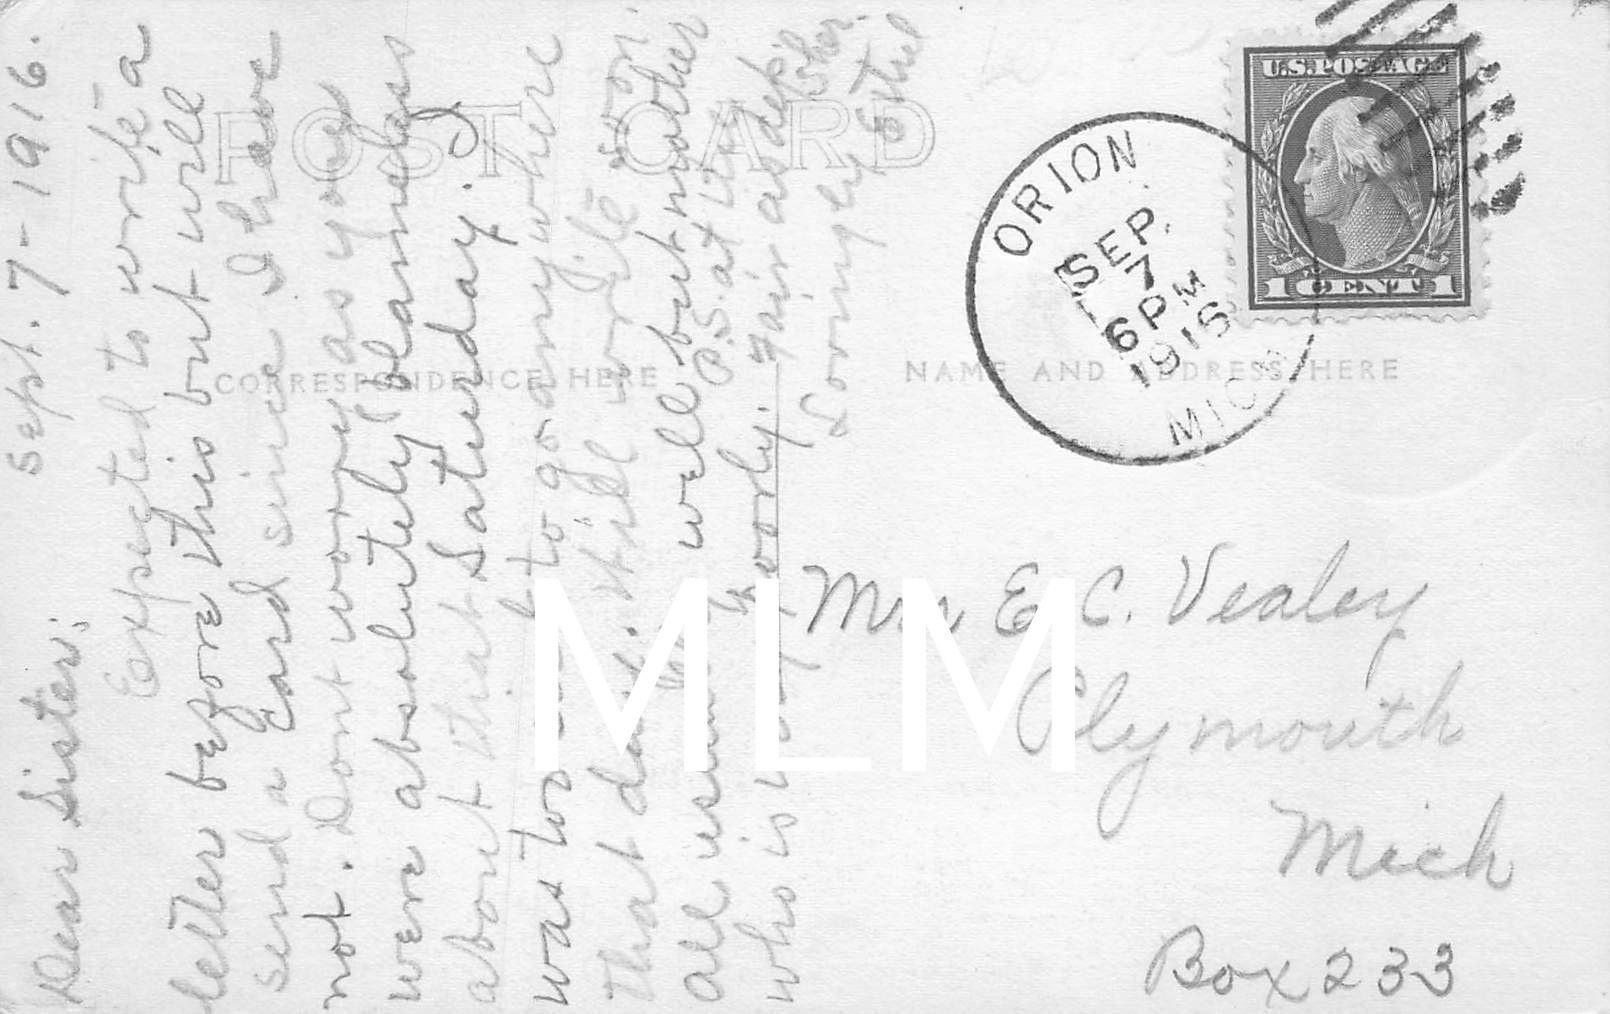 Sept. 7-1916.
Dear Sister;
Expected to write a
letter before this but will
send a card since I have
not. Dont worry as you
were absolutely blameless
about that Saturday. I
was to to go anywhere
that day. Will write soon.
All usually well but mother
who is poorly.
P.S. at Lily
Fair as dep
Lovingly Ethel
POST CARD
CORRESPONDENCE HERE
NAME AND ADDRESS HERE
ORION
SEP.
7
6 PM
1916
MICH
U.S. POSTAGE
1 CENT 1
Mrs E. C. Vealey
Plymouth
Mich
Box 233
MLM